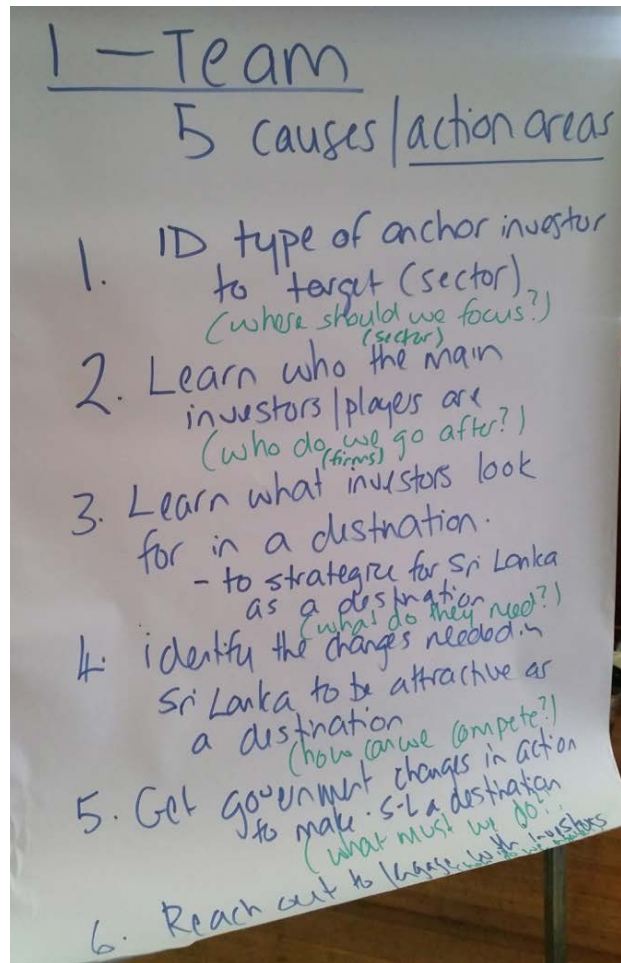 1 - Team
5 causes/action areas
1. ID type of anchor investor
to target (sector)
(where should we focus?)
(sector)
2. Learn who the main
investors/players are
(who do we go after?)
(firms)
3. Learn what investors look
for in a destination.
- to strategize for Sri Lanka
as a destination
(what do they need?)
4. identify the changes needed in
Sri Lanka to be attractive as
a destination
(how can we compete?)
5. Get government changes in action
to make S-L a destination
(what must we do?)
6. Reach out to / engage with investors